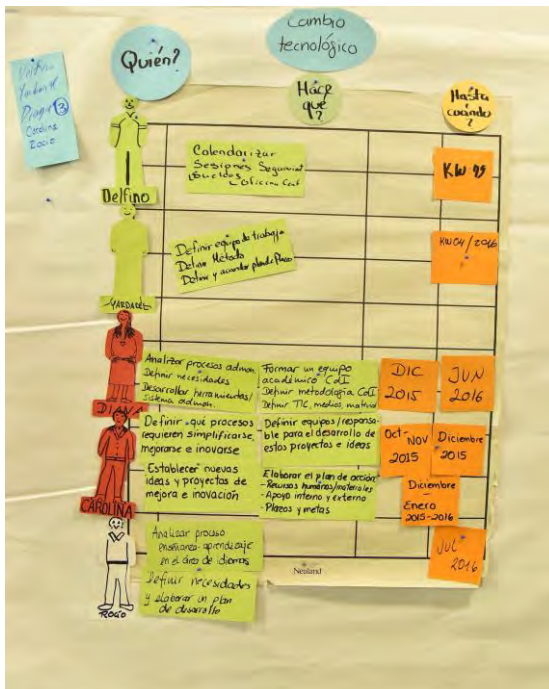 Cambio
tecnológico
Quién?
Hace
qué?
Hasta
cuándo
?
Diana
Carolina
Rocío
3
Delfino
Calendarizar
Sesiones
KW 49
Definir equipo de trabajo
Definir Método
Definir y acordar plan de
KW04/2016
YARDADEL
DIANA
Analizar procesos admon.
Definir necesidades
Desarrollar herramientas/
sistema admon.
Formar un equipo
académico CdI
Definir metodología CdI
Definir TIC, medios, material
DIC
2015
JUN
2016
CAROLINA
Definir qué procesos
requieren simplificarse,
mejorarse e inovarse
Establecer nuevas
ideas y proyectos de
mejora e inovación
Definir equipos/responsa-
ble para el desarrollo de
estos proyectos e ideas
Elaborar el plan de acción
- Recursos humanos/materiales
- Apoyo interno y externo
- Plazos y metas
Oct-Nov
2015
Diciembre
2015
Diciembre
-
Enero
2015-2016
ROCÍO
Analizar proceso
enseñanza-aprendizaje
en el área de idiomas
Definir necesidades
y elaborar un plan
de desarrollo
JUL
2016
Neuland